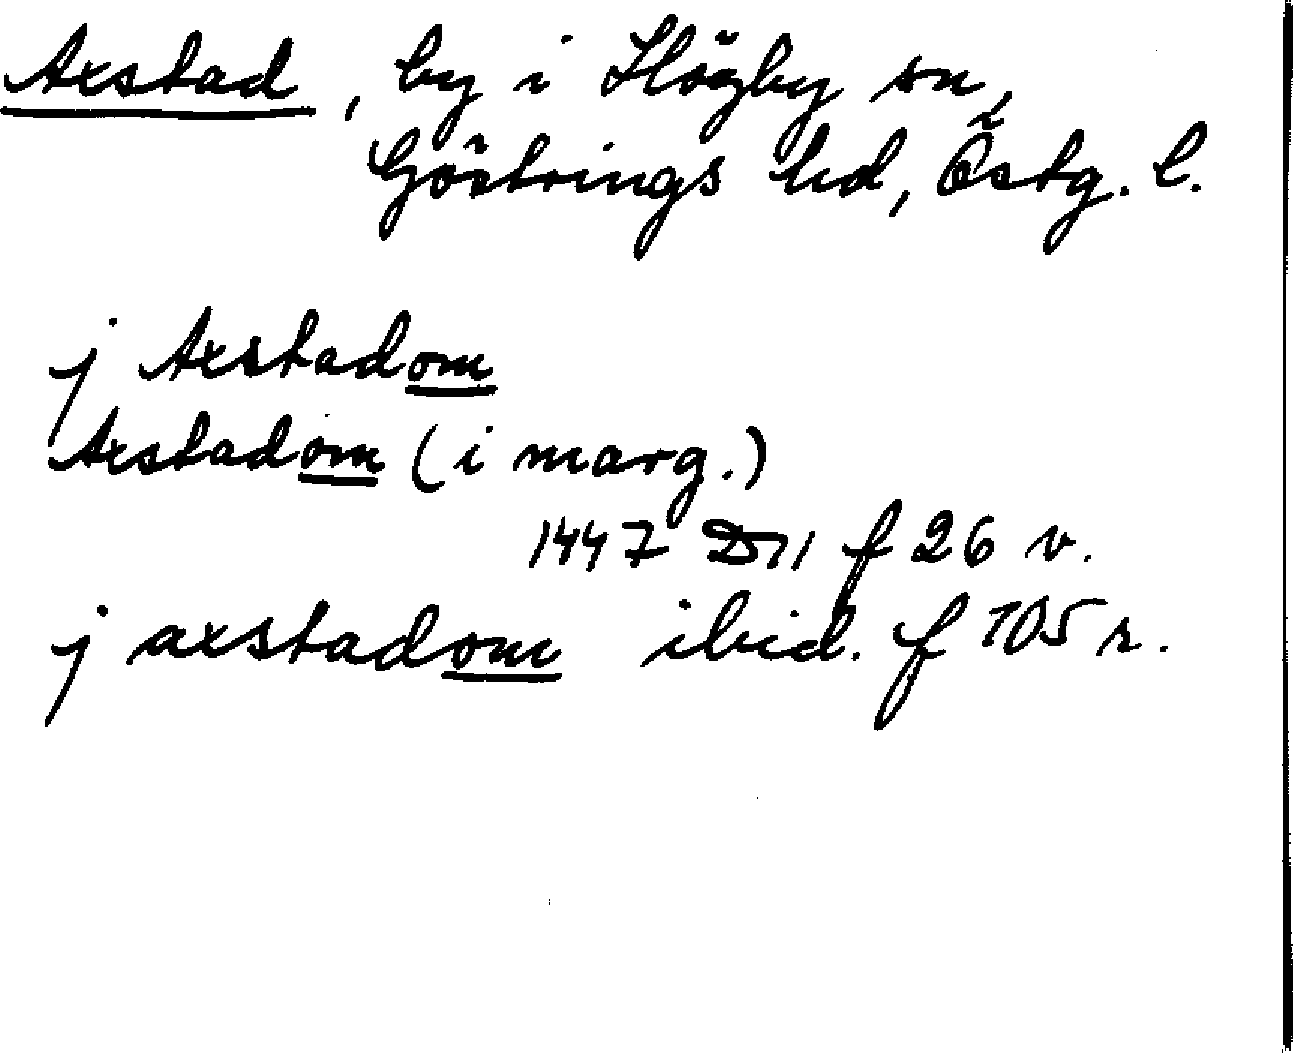 Axstad, by i Högby sn,
Göstrings hd, Östg. l.
j Axstadom
Axstadom (i marg.)
1447 D11 f 26 v.
j axstadom ibid. f 105 r.